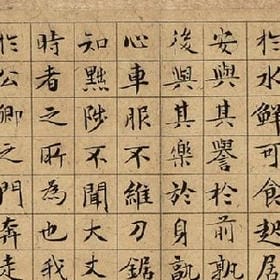 於水鮮可食起居
安與其譽於前孰
後與其樂於身孰
心車服不維刀鋸
知黜陟不聞大丈
時者之所為也我
於公卿之門奔走